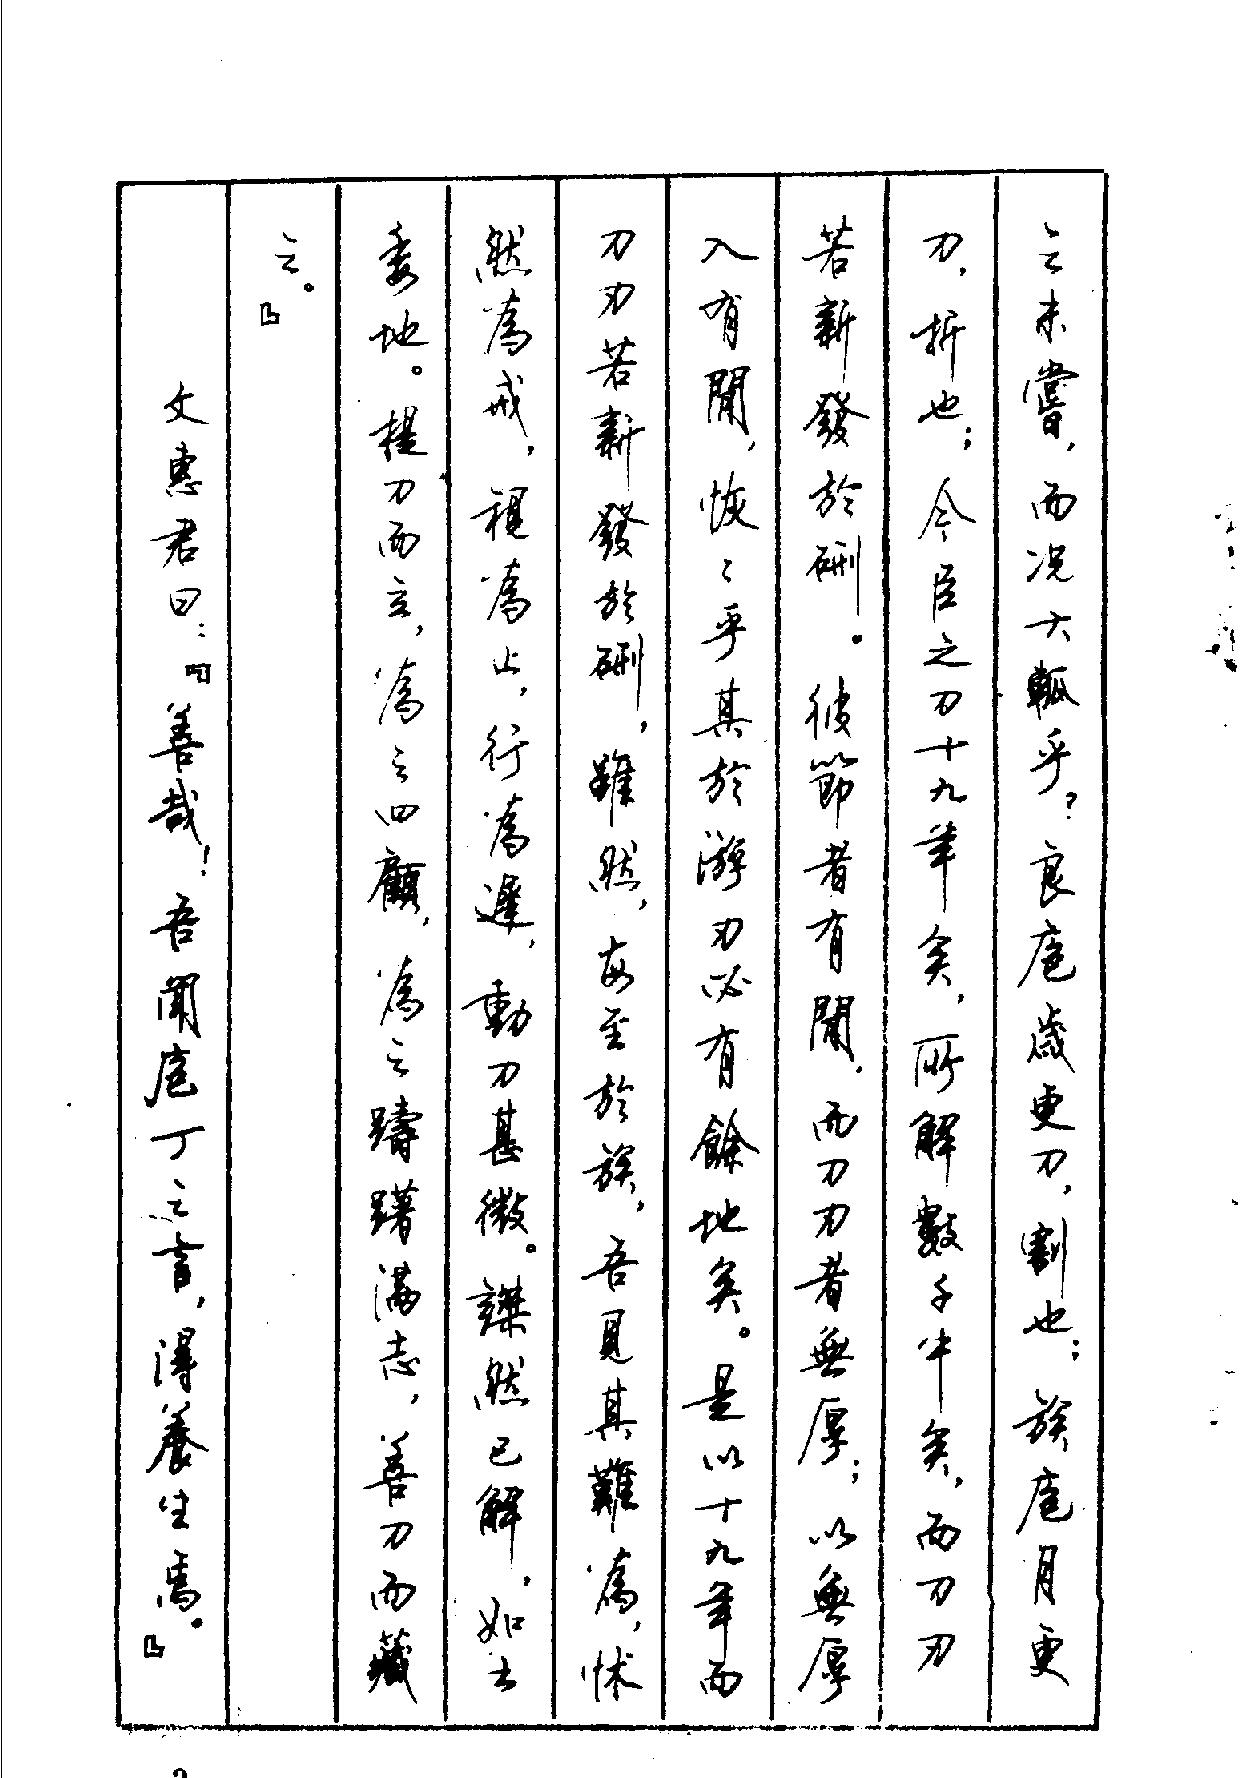 之未嘗，而況大軱乎？良庖歲更刀，割也；族庖月更
刀，折也；今臣之刀十九年矣，所解數千牛矣，而刀刃
若新發於硎。彼節者有閒，而刀刃者無厚；以無厚
入有閒，恢〻乎其於游刃必有餘地矣。是以十九年而
刀刃若新發於硎，雖然，每至於族，吾見其難為，怵
然為戒，視為止，行為遲，動刀甚微。謋然已解，如土
委地。提刀而立，為之四顧，為之躊躇滿志，善刀而藏
之。』
文惠君曰：『善哉！吾聞庖丁之言，得養生焉。』